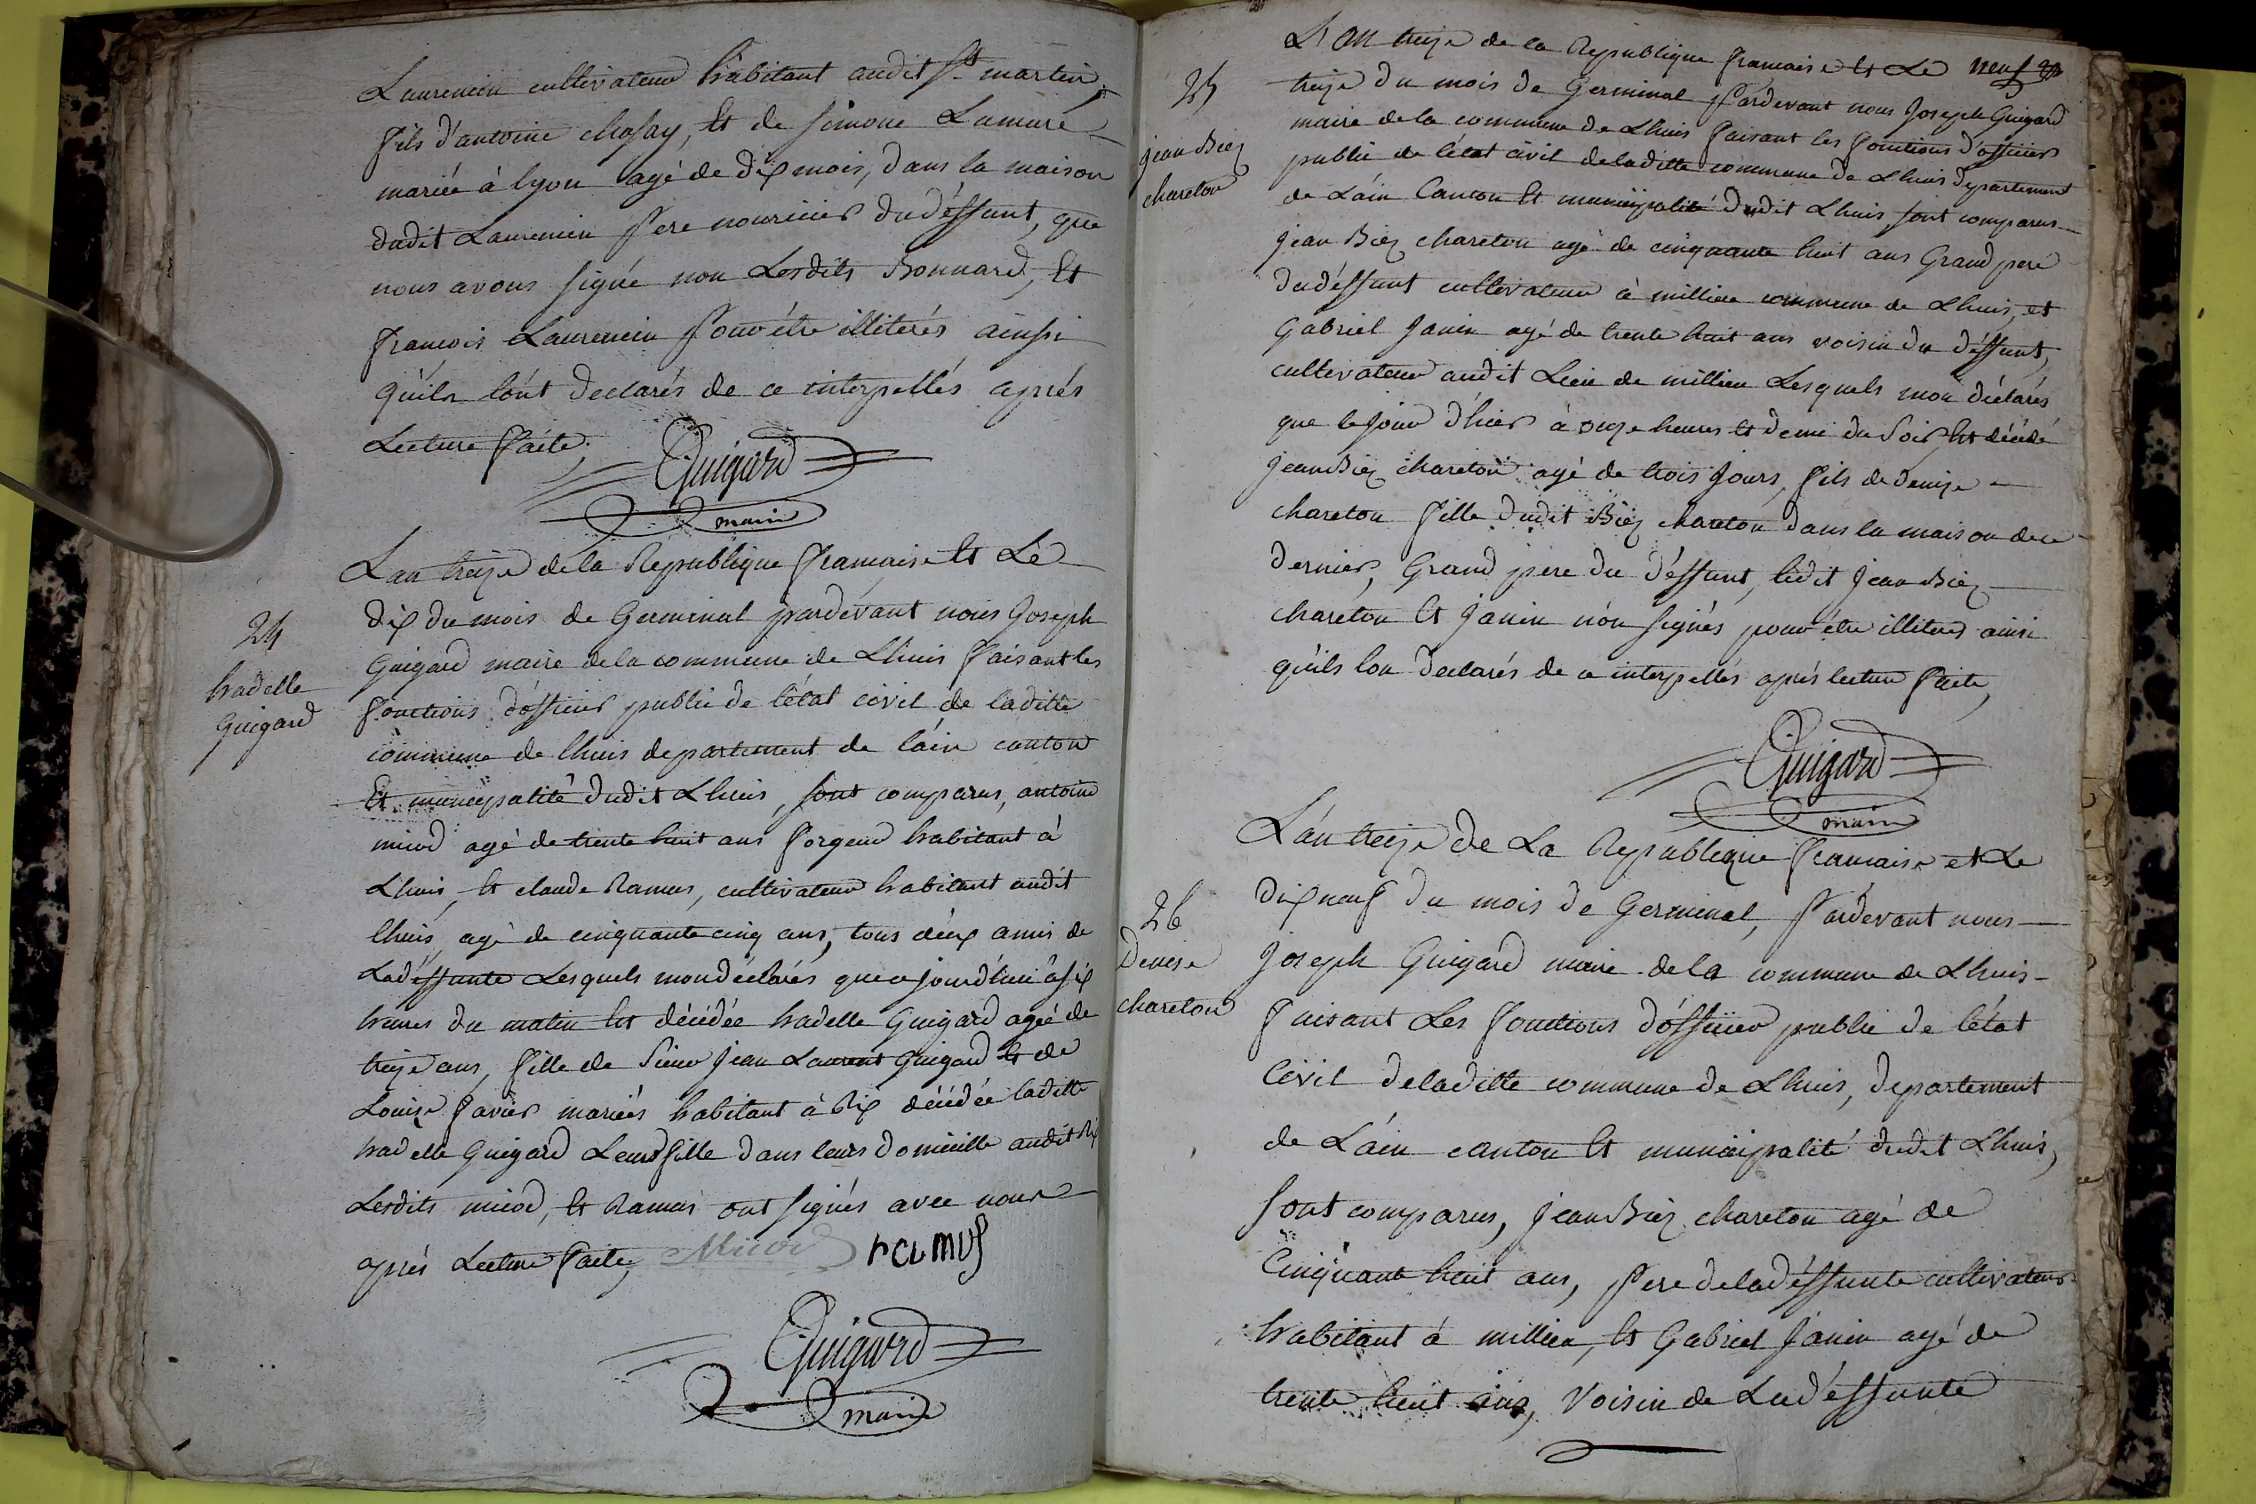 Laurencin cultivateur habitant audit St martin
fils d'antoine chasay, Et de simone Lamure
mariée à lyon agé de dix mois, dans la maison
dudit Laurencin Pere nouricier du déffunt, que
nous avons signé non Lesdits Bonnard, Et
françois Laurencin Pour être illiterés ainssi
qu'ils l'ont declarés de ce interpellés aprés
Lecture faite,
Guigard
maire
24
Isabelle
Guigard
L'an treize de la Republique française Et Le
dix du mois de Germinal pardevant nous Joseph
Guigard maire de la commune de Lhuis faisant les
fonctions d'officier public de l'état civil de laditte
commune de lhuis departement de l'ain canton
Et municipalité dudit Lhuis, sont comparus, antoine
miiod agé de trente huit ans forgeur habitant à
Lhuis, Et claude Ramus, cultivateur habitant audit
lhuis agé de cinquante cinq ans, tous deux amis de
Ladéffunte Lesquels mon déclarés que ce jourd'hui à six
heures du matin Est décédée Isabelle Guigard agée de
treize ans, fille de Sieur Jean Laurent Guigard Et de
Louise favier mariés habitant à Rix décédée laditte
Isabelle Guigard Leur fille dans leurs domicille audit Rix
Lesdits miiod, Et Ramus ont signés avec nous
aprés Lecture faite,
ramus
Guigard
maire
neuf
25
jean Biez
chareton
L'an treize de la Republique française Et Le
treize du mois de Germinal Pardevant nous Joseph Guigard
maire de la commune de Lhuis faisant les fonctions d'officier
public de l'état civil de laditte commune de Lhuis departement
de L'ain Canton Et municipalité dudit Lhuis, sont comparus
jean Biez chareton agé de cinquante huit ans Grand pere
du déffunt cultivateur à millieu commune de Lhuis, et
Gabriel Janin agé de trente huit ans voisin du déffunt,
cultivateur audit Lieu de millieu Lesquels mon déclarés
que le jour d'hier à onze heures Et demi du soir Est décédé
jean Biez chareton agé de trois jours, fils de denize
chareton fille dudit Biez chareton dans la maison de ce
dernier, Grand pere du déffunt, ledit jean Biez
chareton Et janin non signés pour être illiteres ainsi
qu'ils lon declarés de ce interpellés aprés lecture faite,
Guigard
maire
26
Denise
chareton
L'an treize de La Republique francaise et Le
dix neuf du mois de Germinal, Pardevant nous
Joseph Guigard maire de la commune de Lhuis
faisant Les fonctions d'officier public de l'état
Civil de laditte commune de Lhuis, departement
de L'ain canton Et municipalité dudit Lhuis,
sont comparus, jean Biez chareton agé de
Cinquante huit ans, Pere de la déffunte cultivateur
habitant à millieu, Et Gabriel Janin agé de
trente huit ans, Voisin de La déffunte